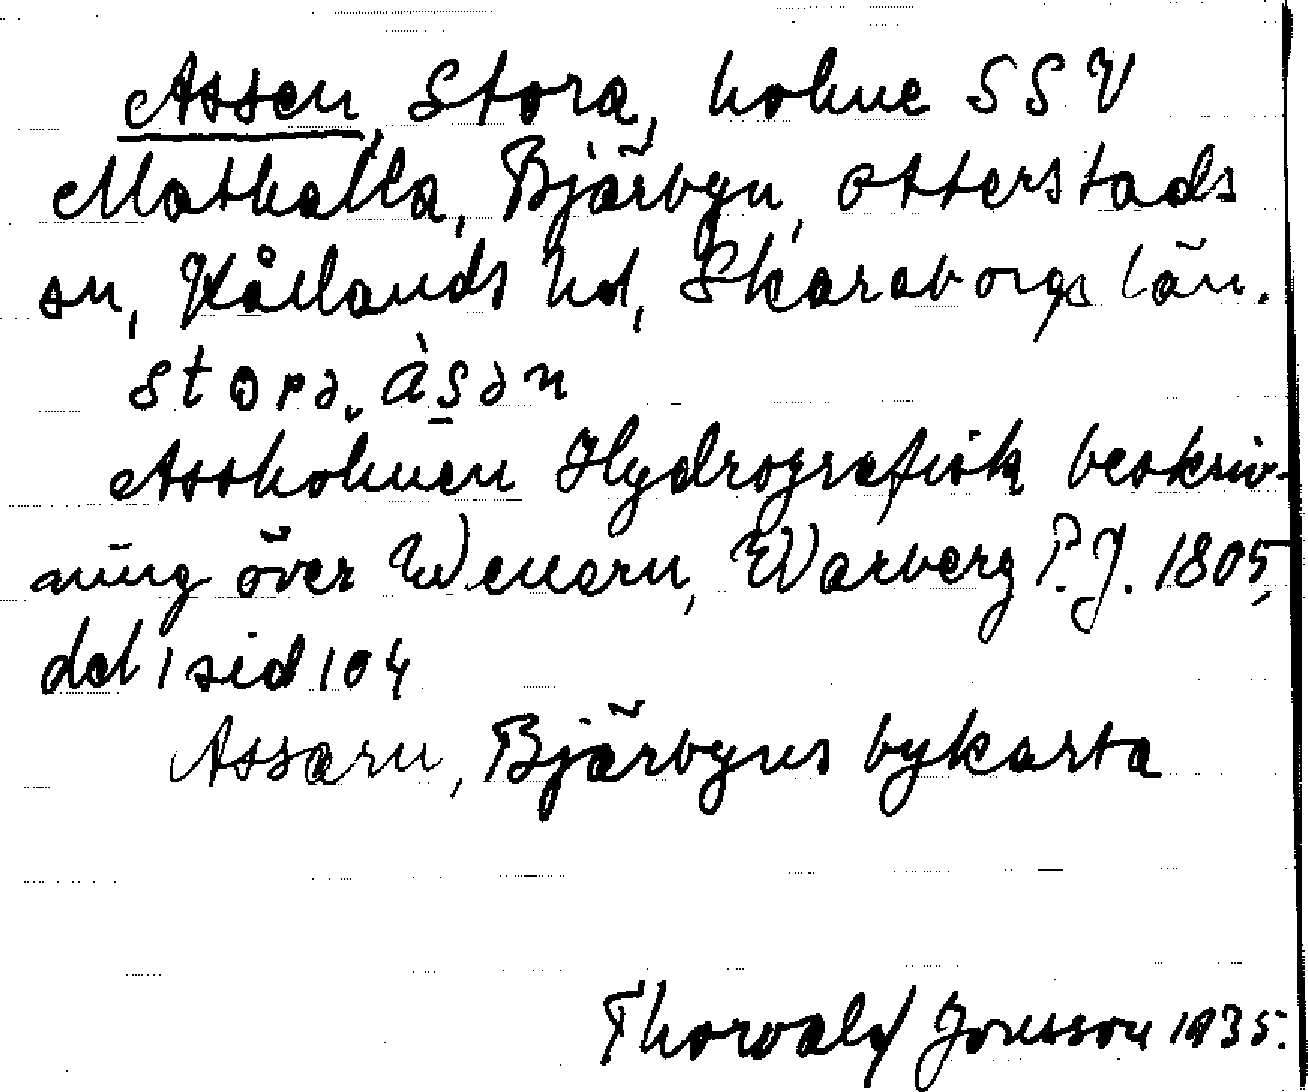 Assen, Stora, holme SSV
Mathalla, Bjärbyn, Otterstads
sn, Kållands hd, Skaraborgs län.
stora. àsan
Assholmen Hydrografisk beskriv-
ning över Wenern, Warberg P.J. 1805,
del 1 sid 104
Assarn, Bjärbyns bykarta
Thorvald Jonsson 1935.